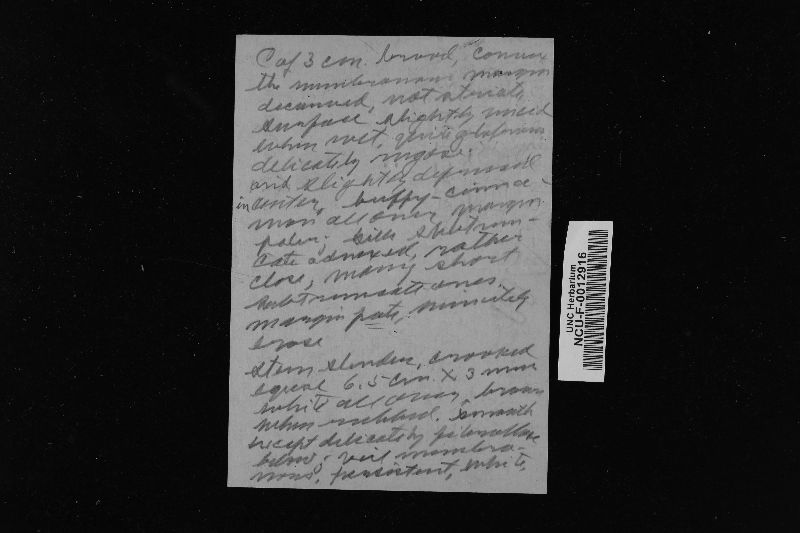 Cap 3 cm. broad, convex
the membranous margin
decurved, not striate,
surface slightly viscid
when wet, quite glabrous
delicately rugose
and slightly depressed
in center, buffy-cinna-
mon all over, margin
paler; gills subtrun-
cate adnexed, rather
close, many short
subtruncate ones.
margin pale, minutely
erose
Stem slender, crooked
equal 6.5 cm. X 3 mm
white all over, brown
when rubbed. Smooth
except delicately fibrillose
below; veil membra-
nous, persistent, white,
UNC Herbarium
NCU-F-0012916